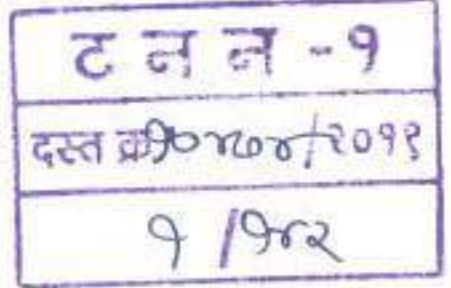 ट न न - १
दस्त क्र १०४७४/२०१९
१ / १४२